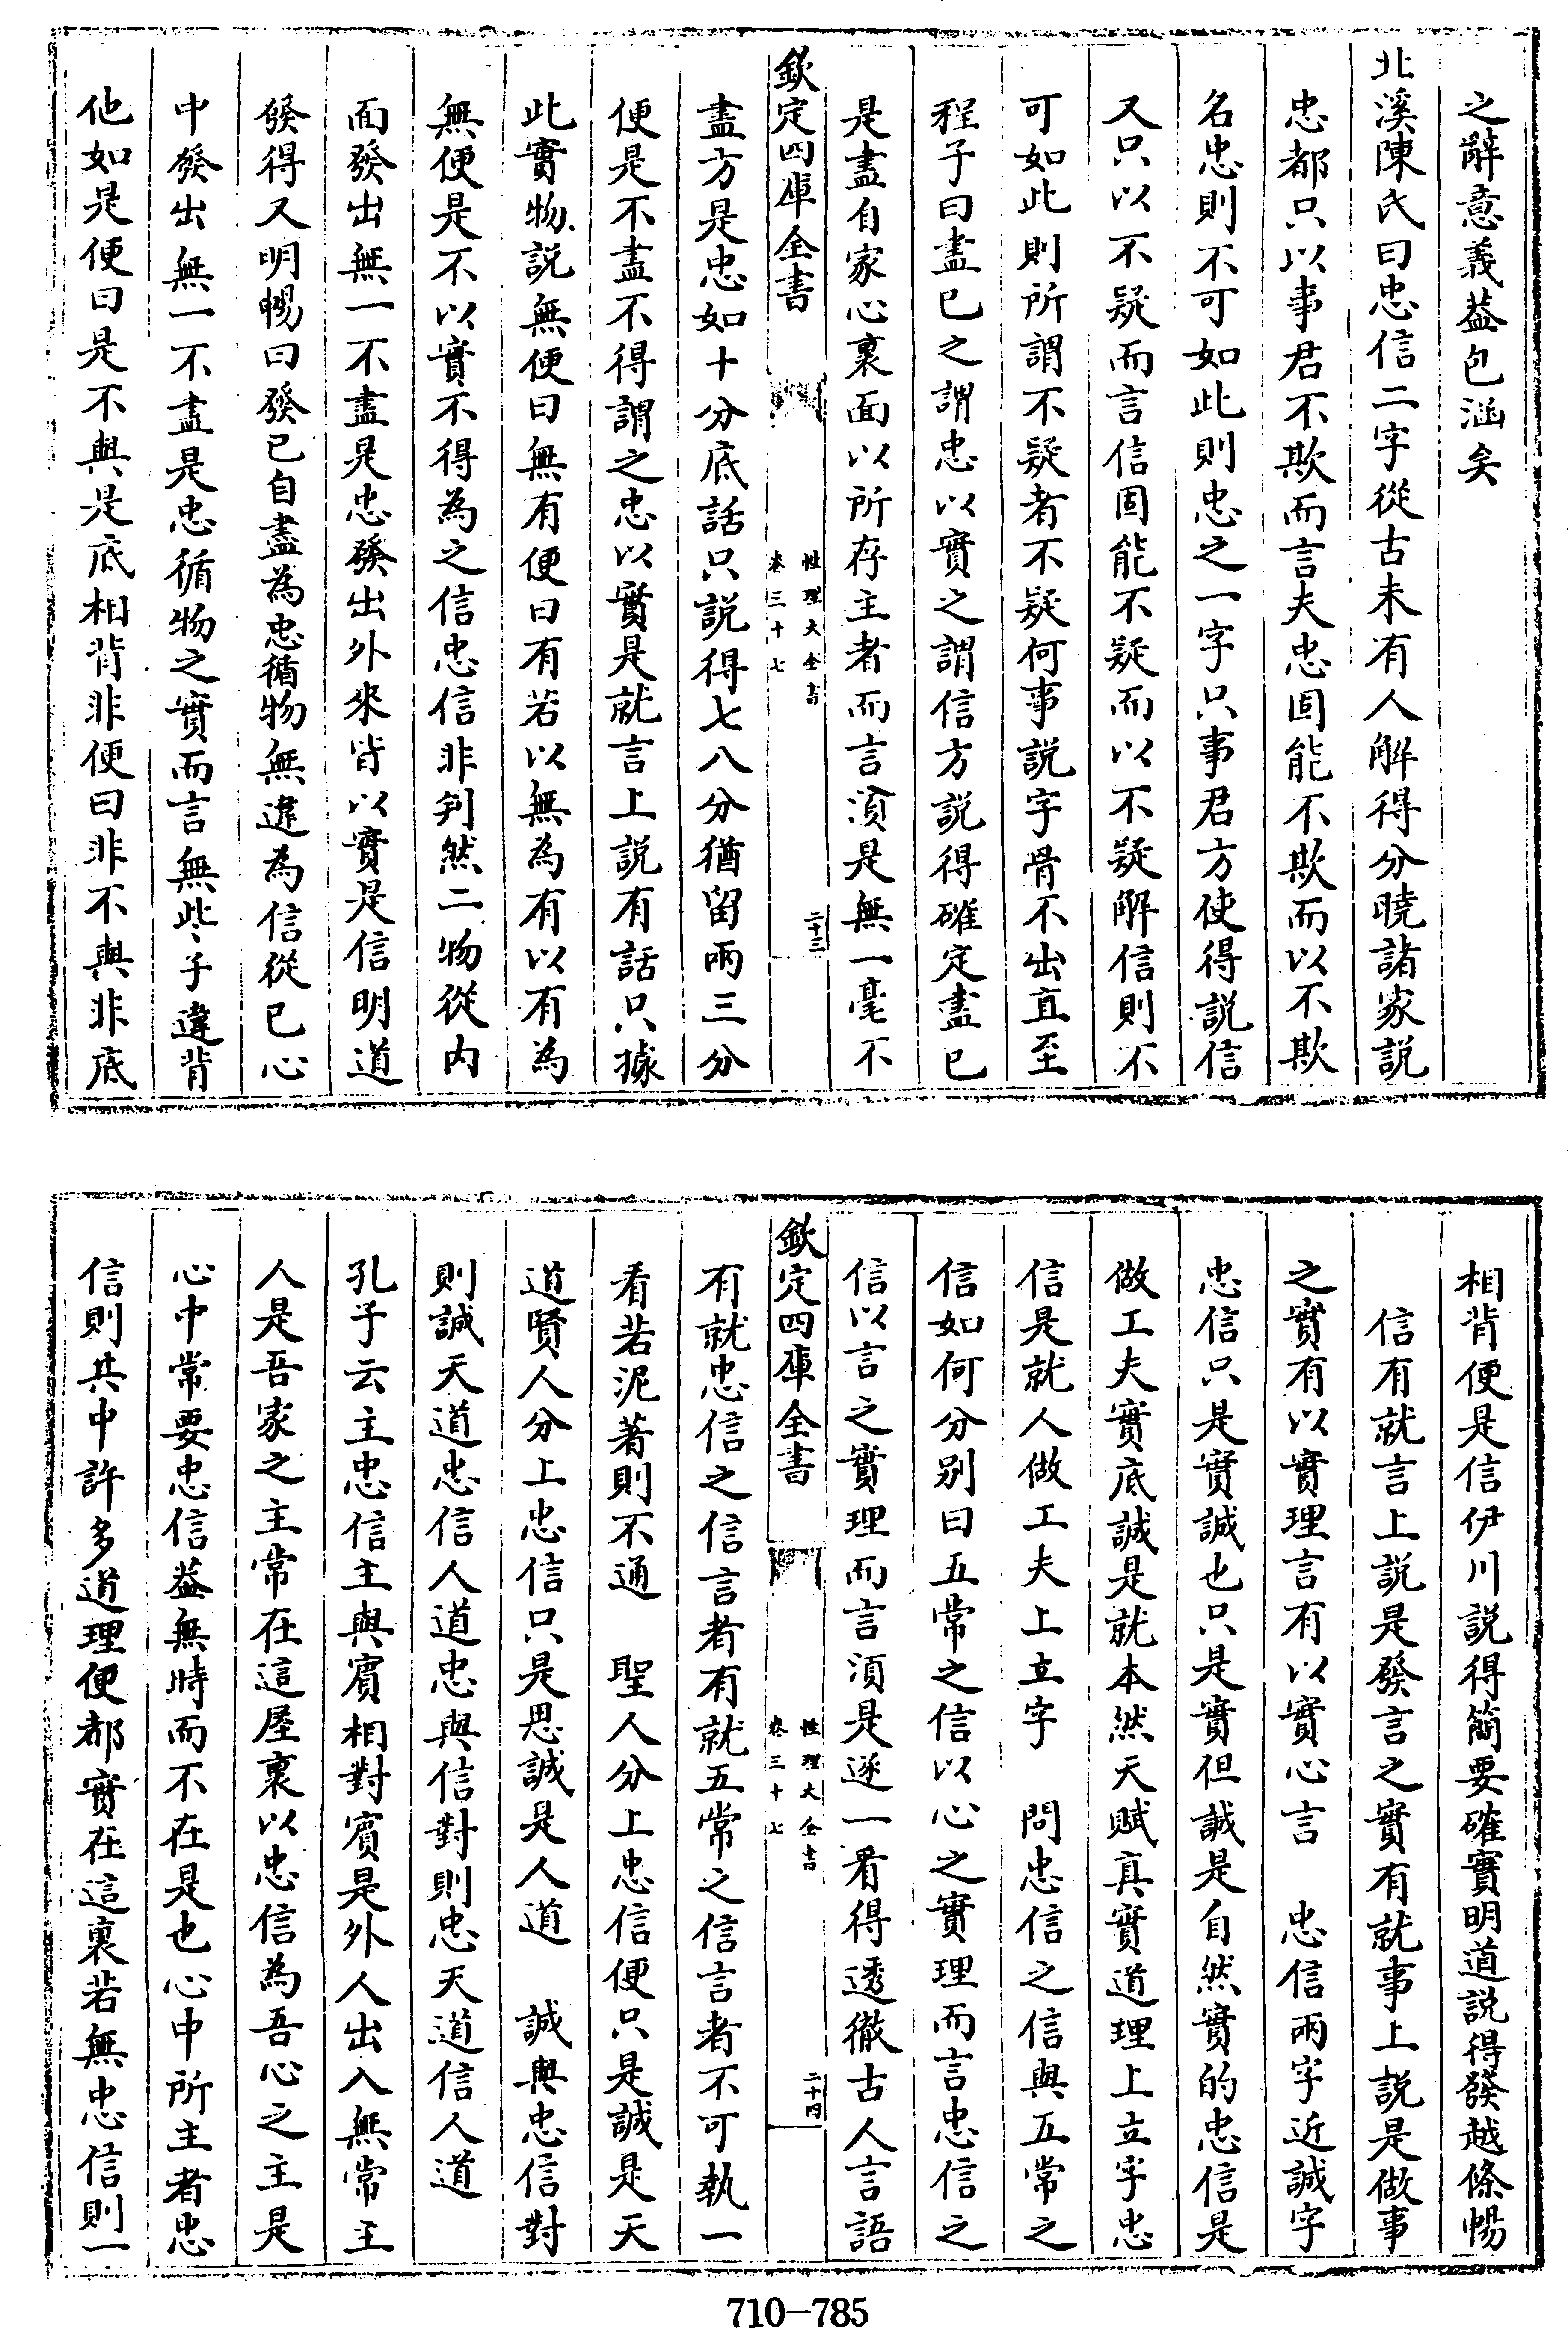 之辭意義葢包涵矣
北溪陳氏曰忠信二字從古未有人解得分曉諸家說
忠都只以事君不欺而言夫忠固能不欺而以不欺
名忠則不可如此則忠之一字只事君方使得說信
又只以不疑而言信固能不疑而以不疑解信則不
可如此則所謂不疑者不疑何事說字骨不出直至
程子曰盡已之謂忠以實之謂信方說得確定盡已
是盡自家心裏面以所存主者而言湏是無一毫不
欽定四庫全書
性理大全書
卷三十七
二十三
盡方是忠如十分底話只說得七八分猶留兩三分
便是不盡不得謂之忠以實是就言上說有話只據
此實物說無便曰無有便曰有若以無為有以有為
無便是不以實不得為之信忠信非判然二物從内
面發出無一不盡是忠發出外來皆以實是信明道
發得又明暢曰發已自盡為忠循物無違為信從已心
中發出無一不盡是忠循物之實而言無些子違背
他如是便曰是不與是底相背非便曰非不與非底
相背便是信伊川說得簡要確實明道說得發越條暢
信有就言上說是發言之實有就事上說是做事
之實有以實理言有以實心言 忠信兩字近誠字
忠信只是實誠也只是實但誠是自然實的忠信是
做工夫實底誠是就本然天賦真實道理上立字忠
信是就人做工夫上立字 問忠信之信與五常之
信如何分别曰五常之信以心之實理而言忠信之
信以言之實理而言湏是逐一看得透徹古人言語
欽定四庫全書
性理大全書
卷三十七
二十四
有就忠信之信言者有就五常之信言者不可執一
看若泥著則不通 聖人分上忠信便只是誠是天
道賢人分上忠信只是思誠是人道 誠與忠信對
則誠天道忠信人道忠與信對則忠天道信人道
孔子云主忠信主與賔相對賔是外人出入無常主
人是吾家之主常在這屋裏以忠信為吾心之主是
心中常要忠信葢無時而不在是也心中所主者忠
信則其中許多道理便都實在這裏若無忠信則一
710-785